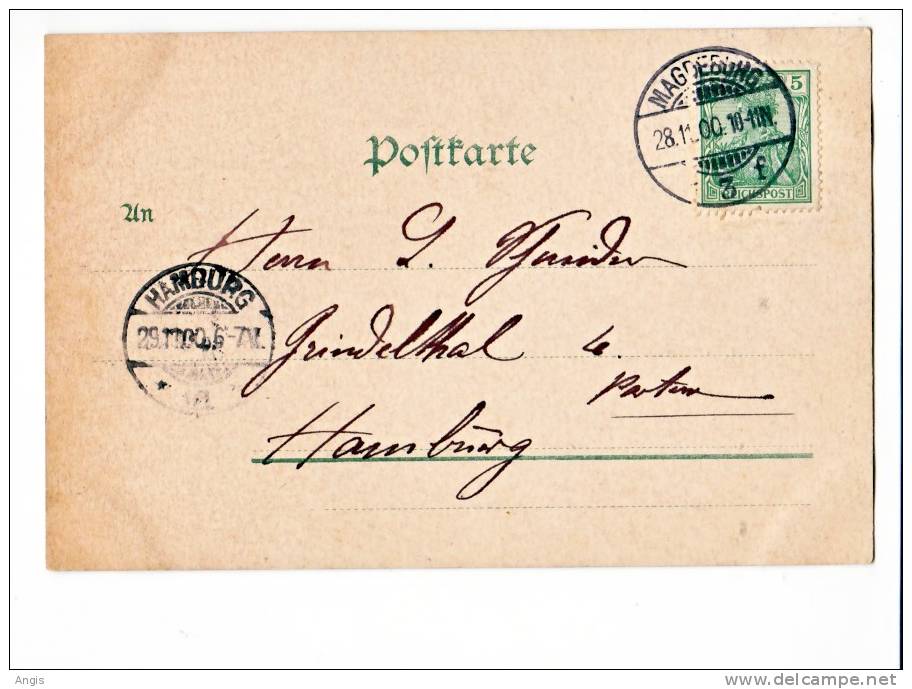 MAGDEBURG
5
28.11.00.10-11N.
3 f
REICHSPOST
Postkarte
An
Herrn L. Schneider
HAMBURG
29.11.00. 6-7V.
Grindelthal 4.
Parterre
Hamburg
Angis
www.delcampe.net